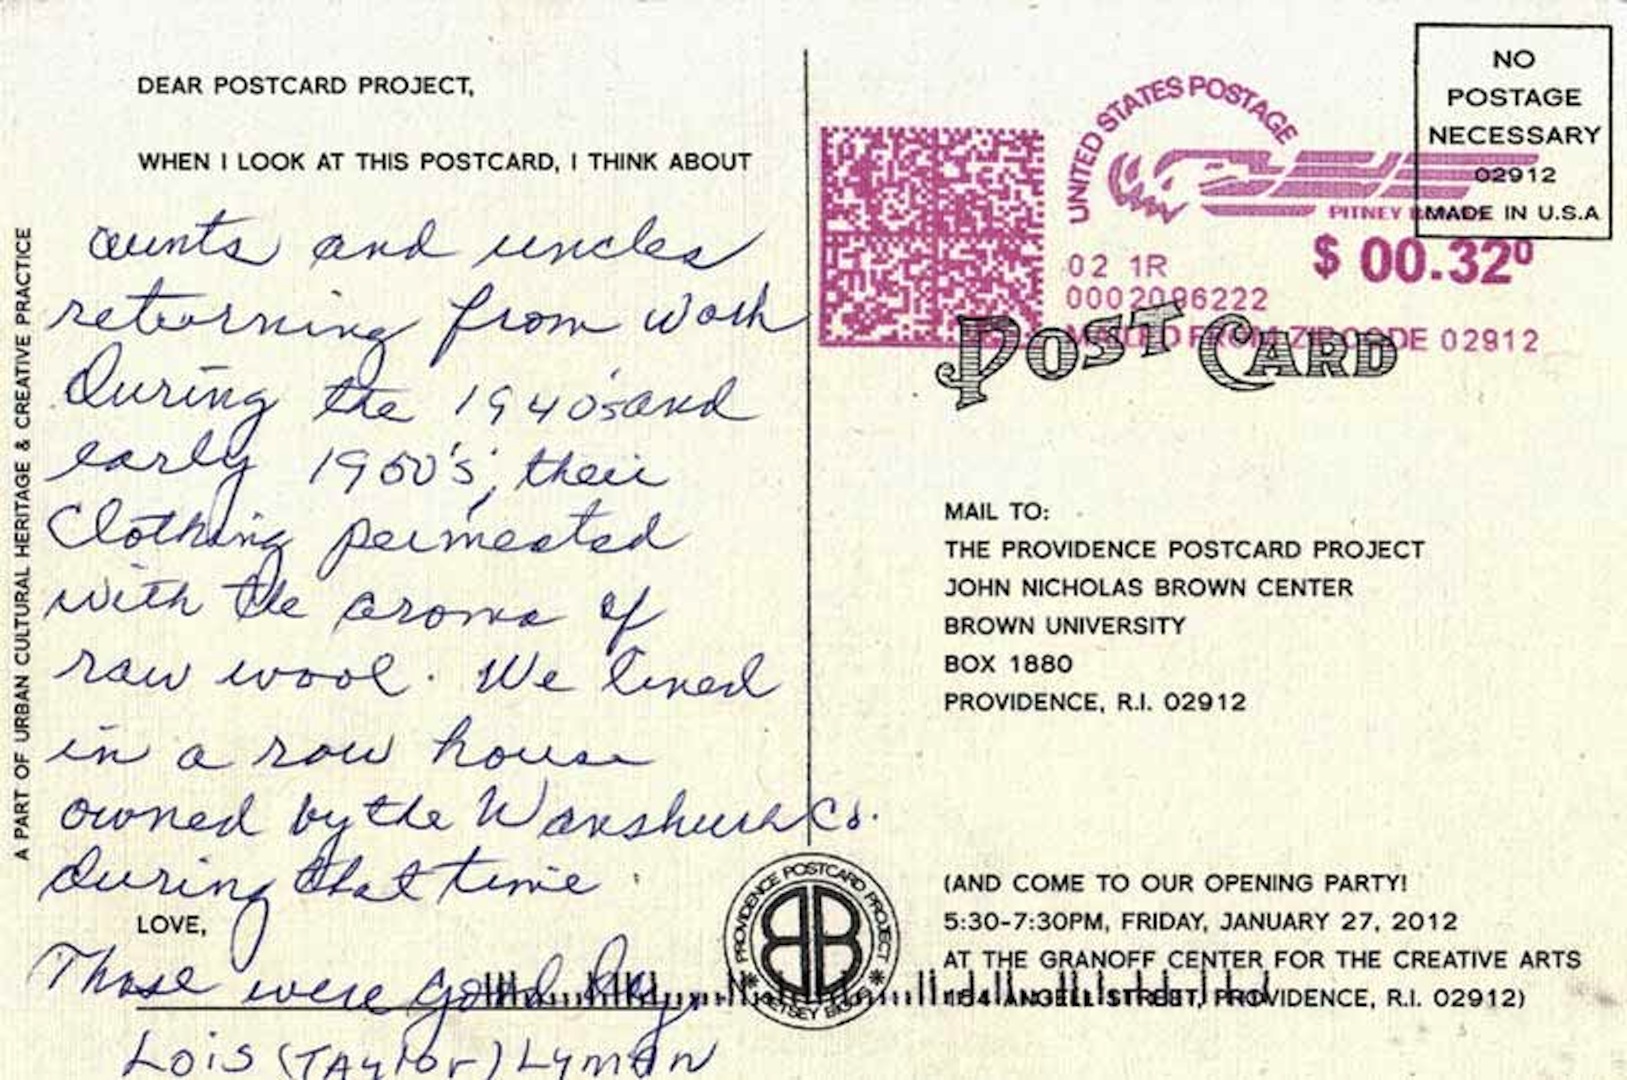 DEAR POSTCARD PROJECT,
WHEN I LOOK AT THIS POSTCARD, I THINK ABOUT
aunts and uncles
returning from work
During the 1940's and
early 1950's, their
Clothing permeated
with the aroma of
raw wool. We lived
in a row house
owned by the Wanskuck Co.
during that time
LOVE,
Those were good days.
Lois (Taylor) Lyman
A PART OF URBAN CULTURAL HERITAGE & CREATIVE PRACTICE
NO
POSTAGE
NECESSARY
02912
MADE IN U.S.A
UNITED STATES POSTAGE
PITNEY BOWES
$ 00.32⁰
02 1R
0002096222
MAILED FROM ZIP CODE 02912
POST CARD
MAIL TO:
THE PROVIDENCE POSTCARD PROJECT
JOHN NICHOLAS BROWN CENTER
BROWN UNIVERSITY
BOX 1880
PROVIDENCE, R.I. 02912
(AND COME TO OUR OPENING PARTY!
5:30-7:30PM, FRIDAY, JANUARY 27, 2012
AT THE GRANOFF CENTER FOR THE CREATIVE ARTS
154 ANGELL STREET, PROVIDENCE, R.I. 02912)
PROVIDENCE POSTCARD PROJECT
BETSEY BIGGS